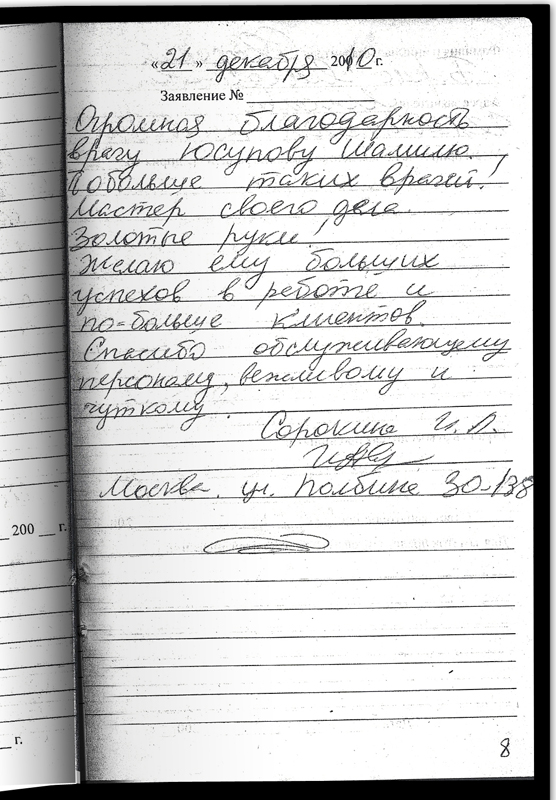 «21» декабря 2010 г.
Заявление №
Огромная благодарность
врачу Юсупову Шамилю.
Побольше таких врачей!
Мастер своего дела.
Золотые руки!
Желаю ему больших
успехов в работе и
по-больше клиентов.
Спасибо обслуживающему
персоналу, вежливому и
чуткому.
Сорокина И. Л.
Москва. ул. Полбина 30-138
200 г.
г.
8